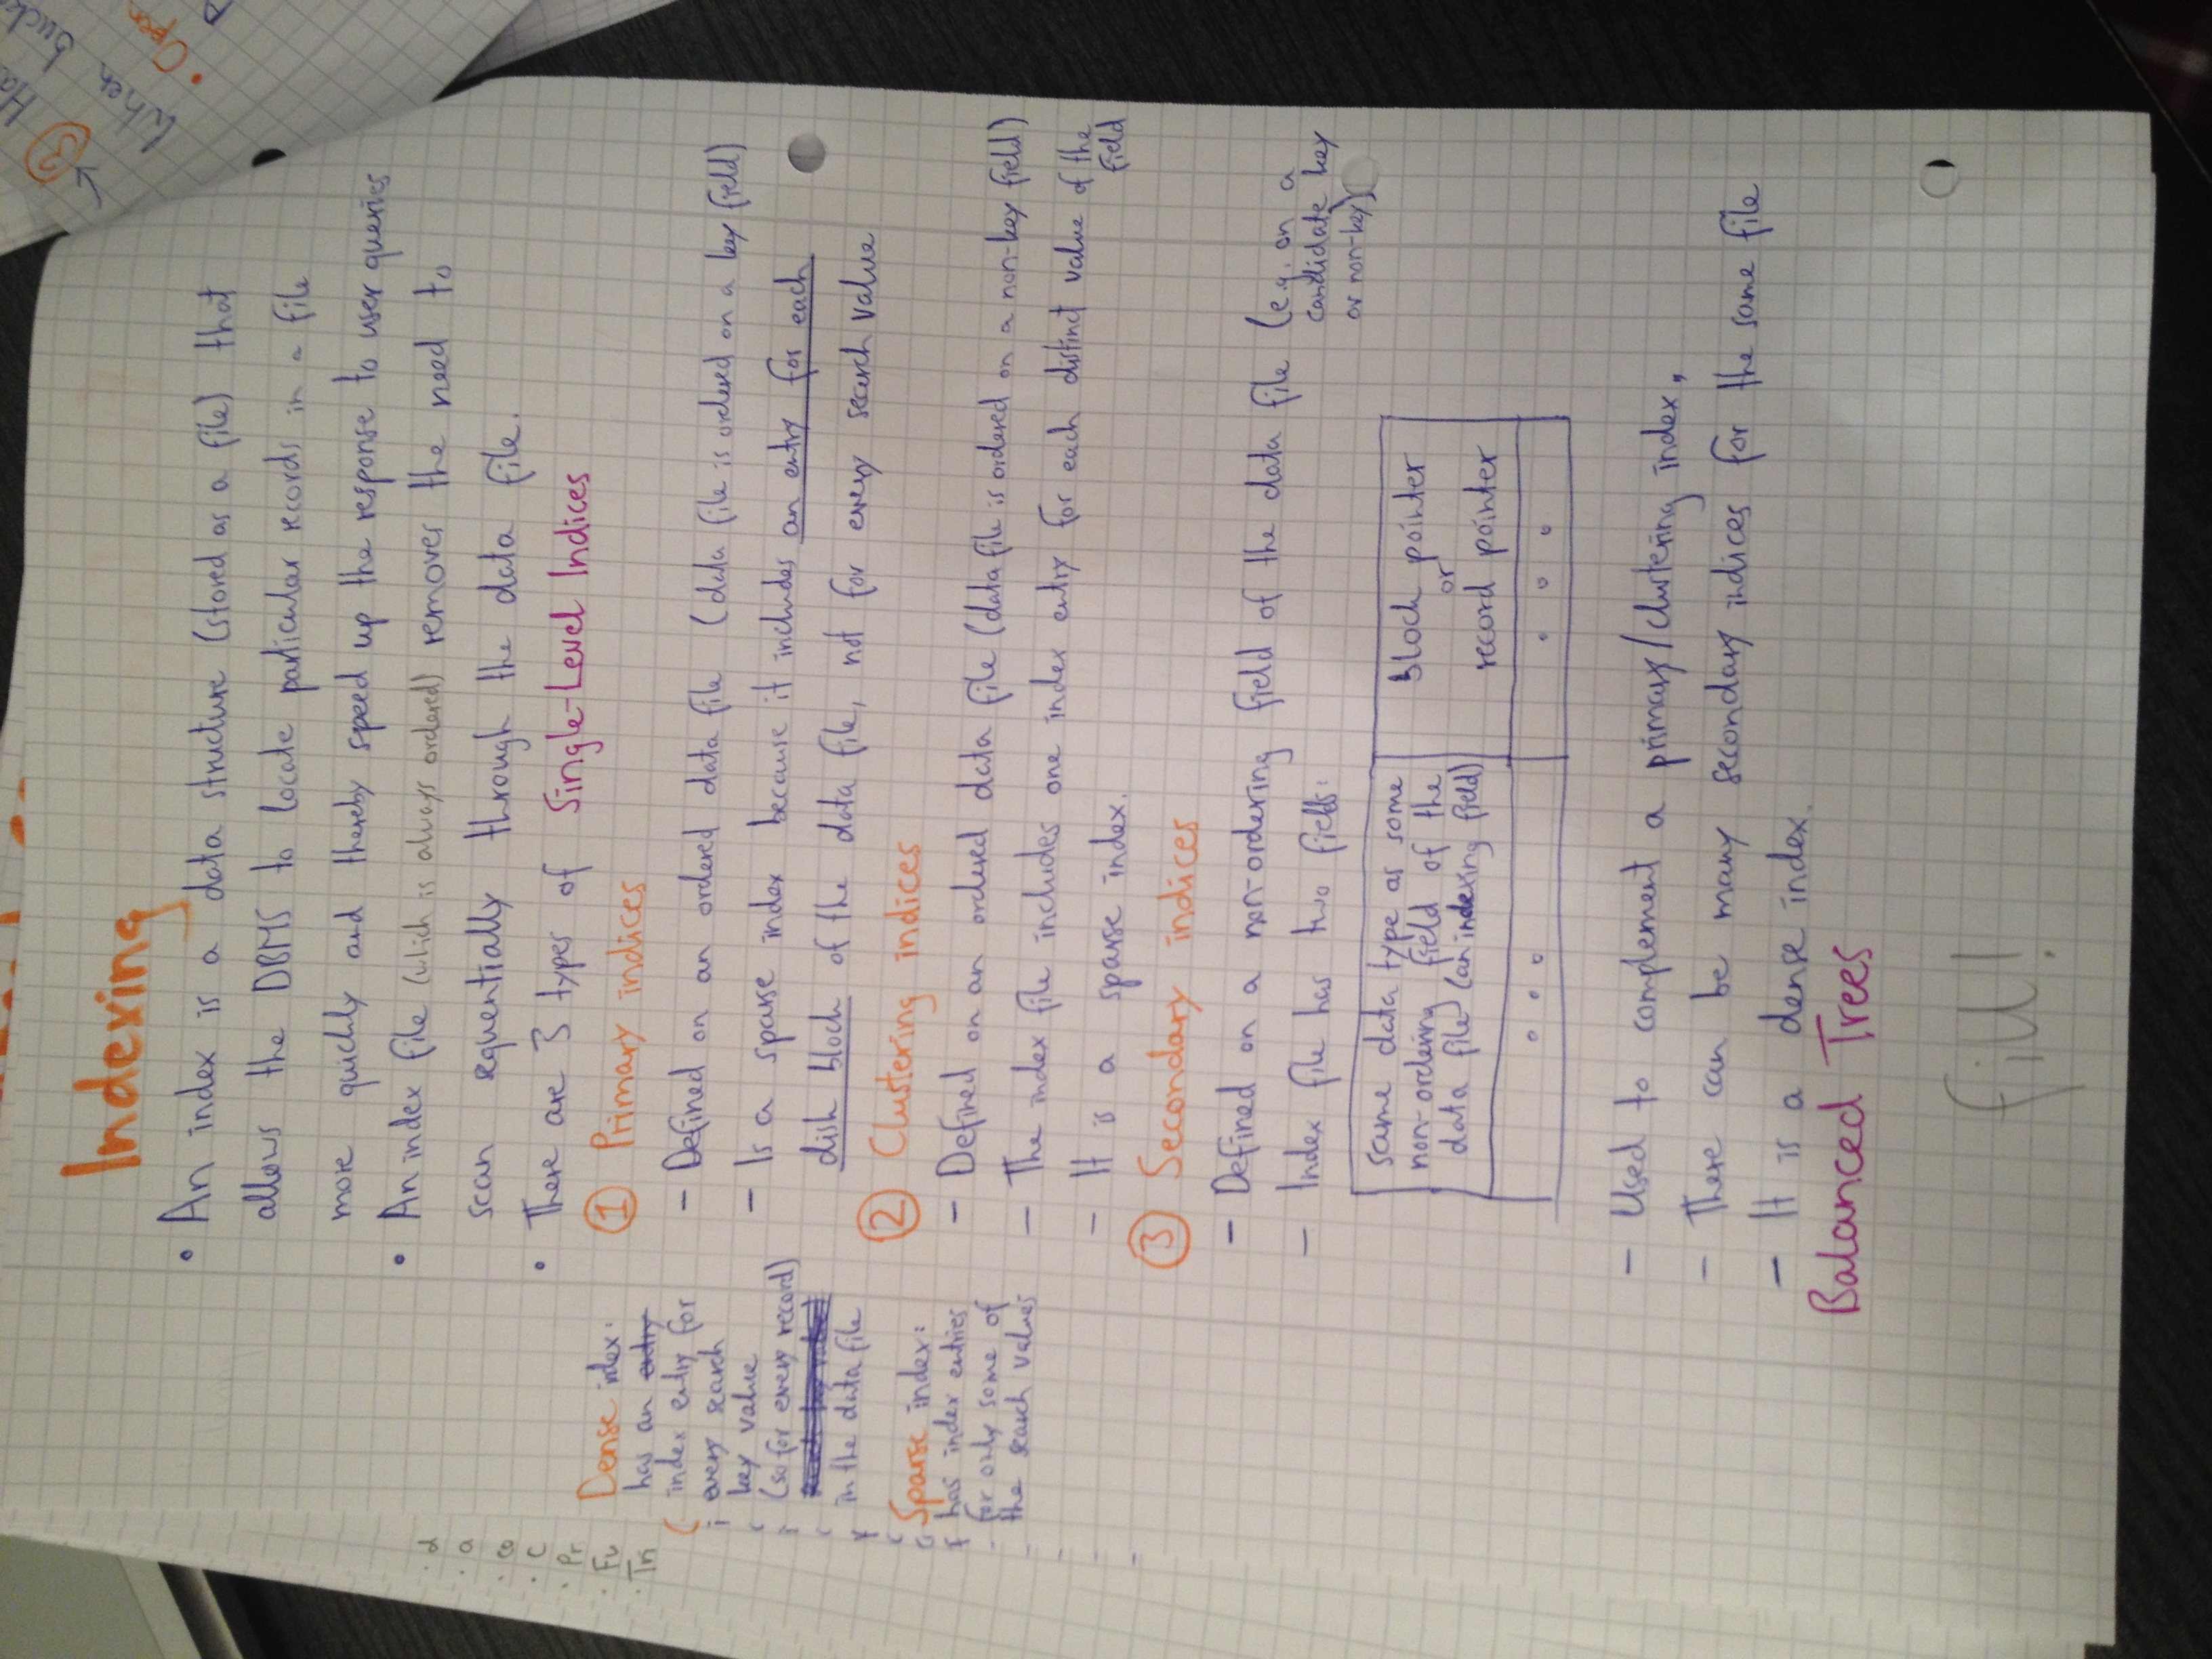 Indexing
• An index is a data structure (stored as a file) that
allows the DBMS to locate particular records in a file
more quickly and thereby speed up the response to user queries
• An index file (which is always ordered) removes the need to
scan sequentially through the data file.
• There are 3 types of Single-Level Indices
① Primary indices
- Defined on an ordered data file (data file is ordered on a key field)
- Is a sparse index because it includes an entry for each
disk block of the data file, not for every search value
② Clustering indices
- Defined on an ordered data file (data file is ordered on a non-key field)
- The index file includes one index entry for each distinct value of the
field
- It is a sparse index.
③ Secondary indices
- Defined on a non-ordering field of the data file (e.g. on a
candidate key
or non-key)
- Index file has two fields:
same data type as some
non-ordering field of the
data file (an indexing field)
block pointer
or
record pointer
- Used to complement a primary/clustering index.
- There can be many secondary indices for the same file
- It is a dense index.
Balanced Trees
fill!
Dense index:
has an entry
index entry for
every search
key value
(so for every record)
in the data file
Sparse index:
has index entries
for only some of
the search values
d
a
C
Pr
Fu
Tri
③ Ha
When buck
• Open